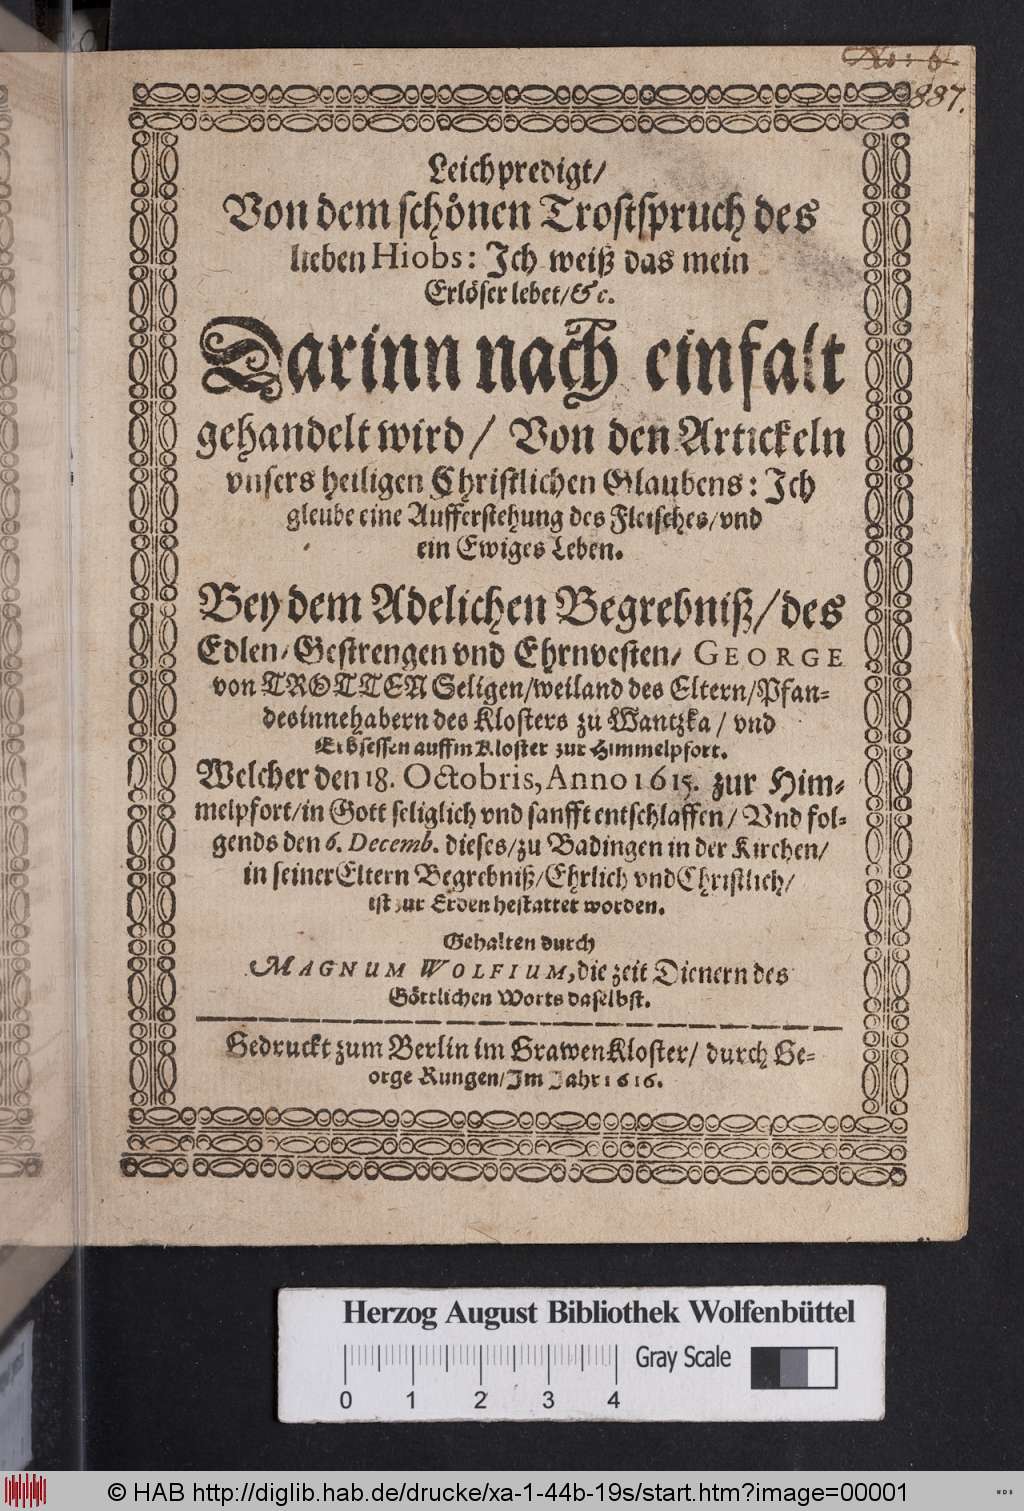 887.
Leichpredigt/
Von dem schönen Trostspruch des
lieben Hiobs: Ich weiß das mein
Erlöser lebet/&c.
Darinn nach einfalt
gehandelt wird/ Von den Artickeln
vnsers heiligen Christlichen Glaubens: Ich
gleube eine Aufferstehung des Fleisches/vnd
ein Ewiges Leben.
Bey dem Adelichen Begrebniß/des
Edlen/Gestrengen vnd Ehrnvesten/ GEORGE
von TROTTEN Seligen/weiland des Eltern/Pfan-
desinnehabern des Klosters zu Wantzka/ vnd
Erbsessen auffm Kloster zur Himmelpfort.
Welcher den 18. Octobris, Anno 1615. zur Him-
melpfort/in Gott seliglich vnd sanfft entschlaffen/ Vnd fol-
gends den 6. Decemb. dieses/zu Badingen in der Kirchen/
in seiner Eltern Begrebniß/Ehrlich vnd Christlich/
ist zur Erden bestattet worden.
Gehalten durch
MAGNUM WOLFIUM, die zeit Dienern des
Göttlichen Worts daselbst.
Gedruckt zum Berlin im GrawenKloster/ durch Ge-
orge Rungen/Im Jahr 1616.
Herzog August Bibliothek Wolfenbüttel
Gray Scale
0 1 2 3 4
© HAB http://diglib.hab.de/drucke/xa-1-44b-19s/start.htm?image=00001